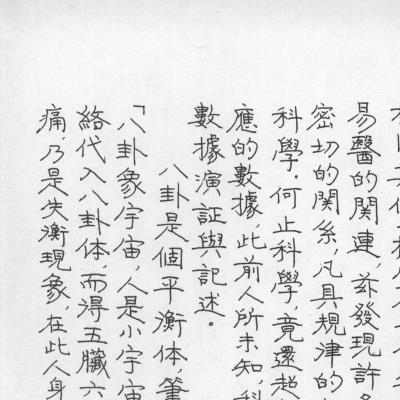 易醫的關連，茲發現許多
密切的關係，凡具規律的
科學。何止科學，竟還超
應的數據，此前人所未知，科
數據演証與記述。
八卦是個平衡体，筆
「八卦象宇宙，人是小宇宙
絡代入八卦体，而得五臟六
痛，乃是失衡現象，在此人身